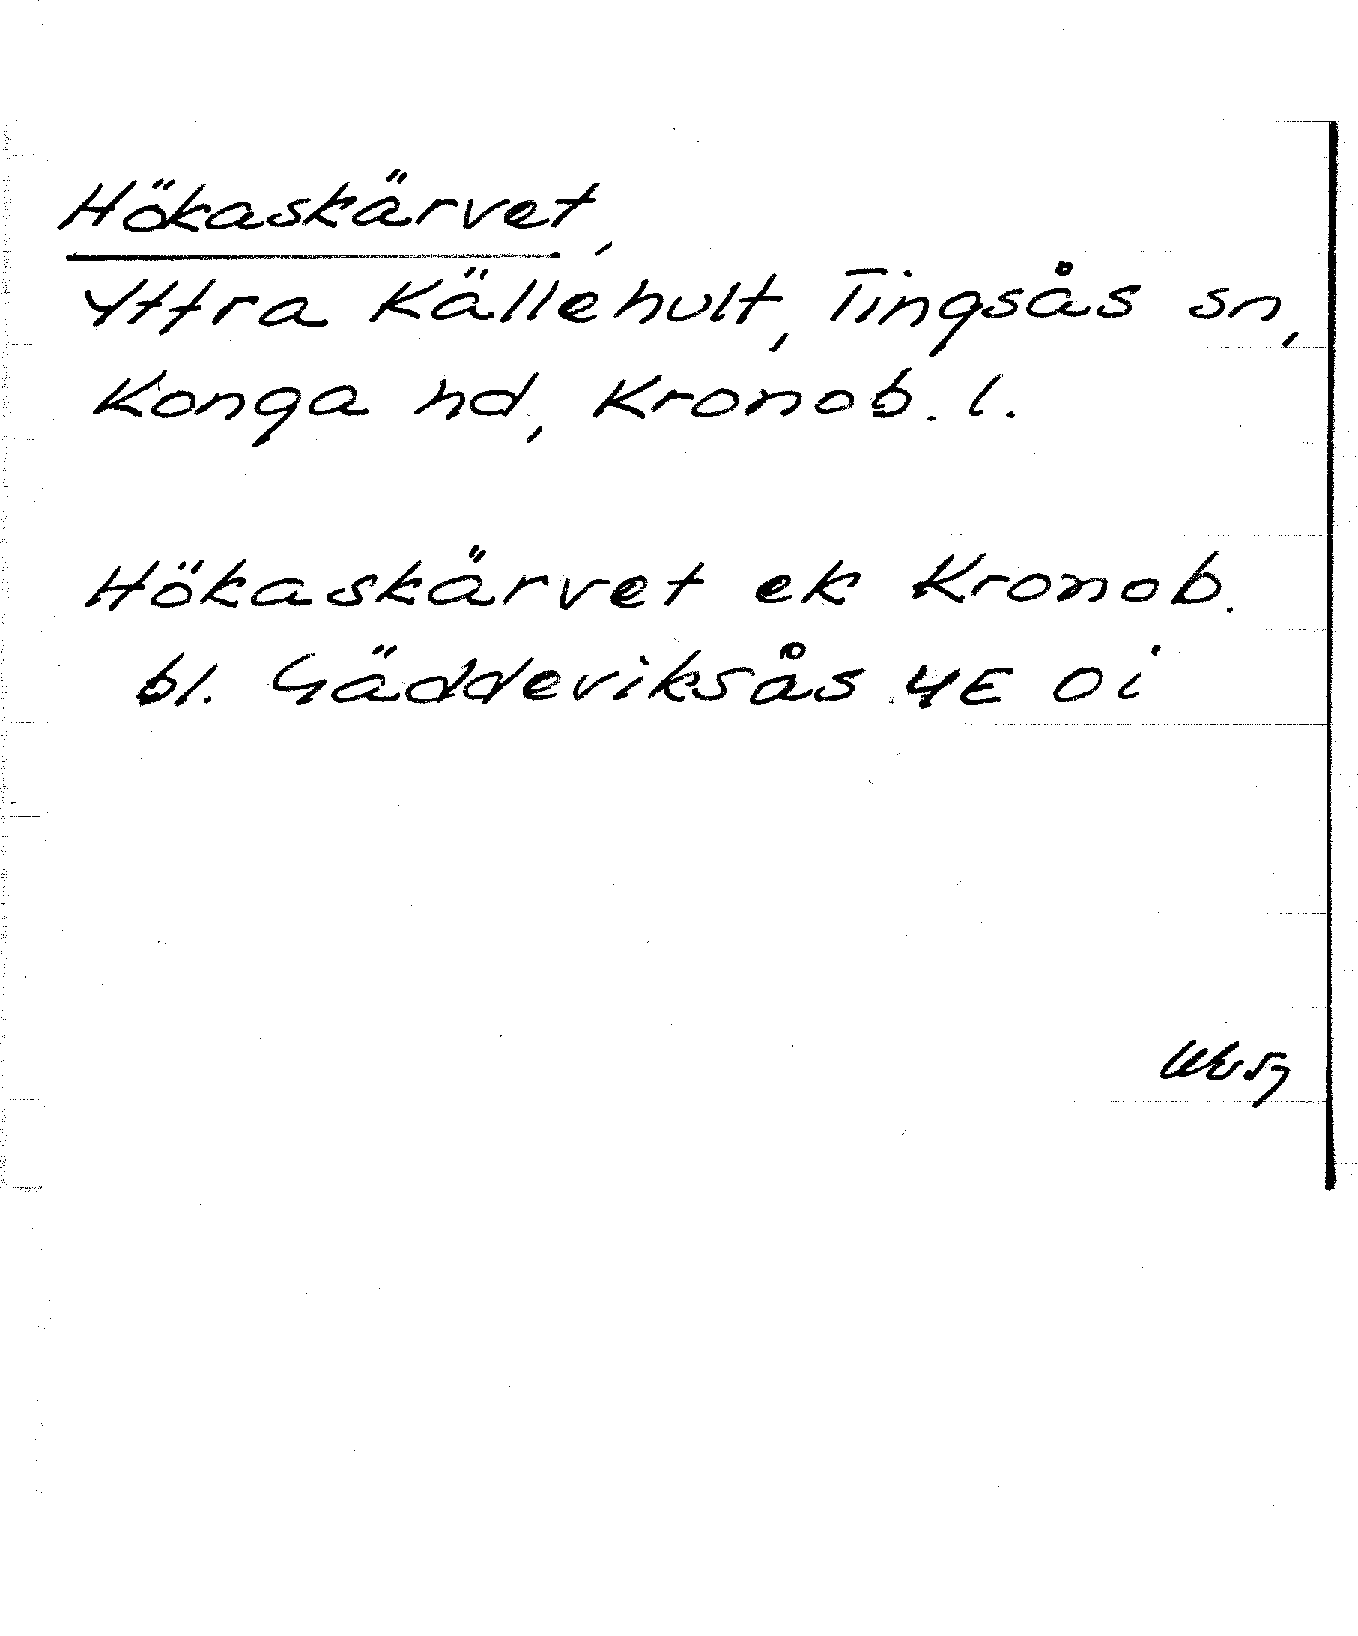 Hökaskärvet,
Yttra Källehult, Tingsås sn,
Konga hd, Kronob. l.
Hökaskärvet ek Kronob.
bl. Gädderiksås 4E 0i